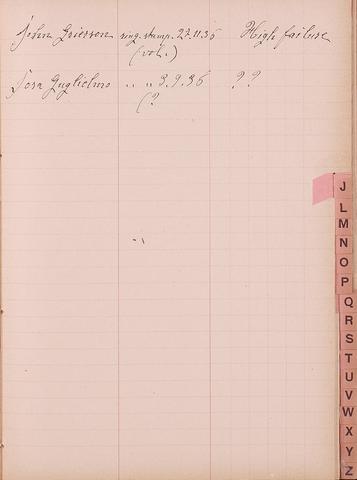 John Grierson ring. stamp. 27.11.35 High failure
(vol.)
Guglielmo " " 3.9.36 ? ?
(?
J
L
M
N
O
P
Q
R
S
T
U
V
W
X
Y
Z